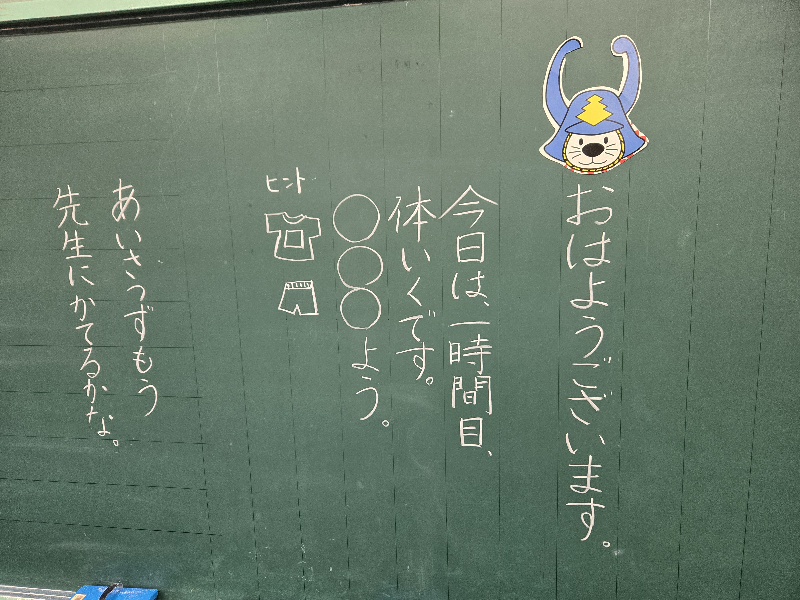 おはようございます。
今日は、一時間目、
体いくです。
○○○よう。
ヒント
あいさつずもう
先生にかてるかな。